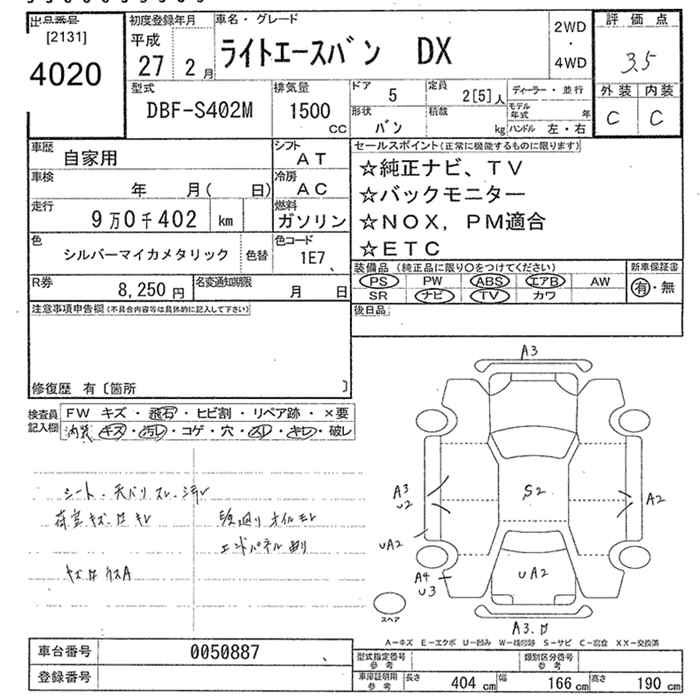 出品番号
[2131]
4020
初度登録年月
平成
27 2月
車名・グレード
ライトエースバン DX
2WD
・
4WD
評価点
3.5
外装 内装
C C
型式
DBF-S402M
排気量
1500
CC
ドア 5
定員 2[5]人
ディーラー・並行
形状 バン
積載 kg
モデル年式 年
ハンドル 左・右
車歴 自家用
シフト AT
車検 年 月( 日)
冷房 AC
走行 9万0千402 km
燃料 ガソリン
色 シルバーマイカメタリック 色替
色コード 1E7、
R券 8,250円
名変通知期限 月 日
セールスポイント(正常に機能するものに限ります)
☆純正ナビ、TV
☆バックモニター
☆NOX，PM適合
☆ETC
装備品 (純正品に限り○をつけてください)
PS PW ABS エアB AW
SR ナビ TV カワ
新車保証書
有・無
後日品
注意事項申告欄(不具合内容等は具体的に記入して下さい)
修復歴 有〔箇所 〕
検査員記入欄
FW キズ・飛石・ヒビ割・リペア跡・×要
内装 キズ・汚レ・コゲ・穴・スレ・キレ・破レ
シート・天バリ スレ・汚レ
荷室キズ・サ キレ
エンドパネル曲り
A3
A3
U2
UA2
A4
U3
S2
A2
UA2
A3.
スペア
A－キズ E－エクボ U－凹み W－補修跡 S－サビ C－腐食 XX－交換済
車台番号 0050887 、
登録番号
型式指定番号 参考
類別区分番号 参考
車庫証明用 参考 長さ 404 cm 幅 166 cm 高さ 190 cm